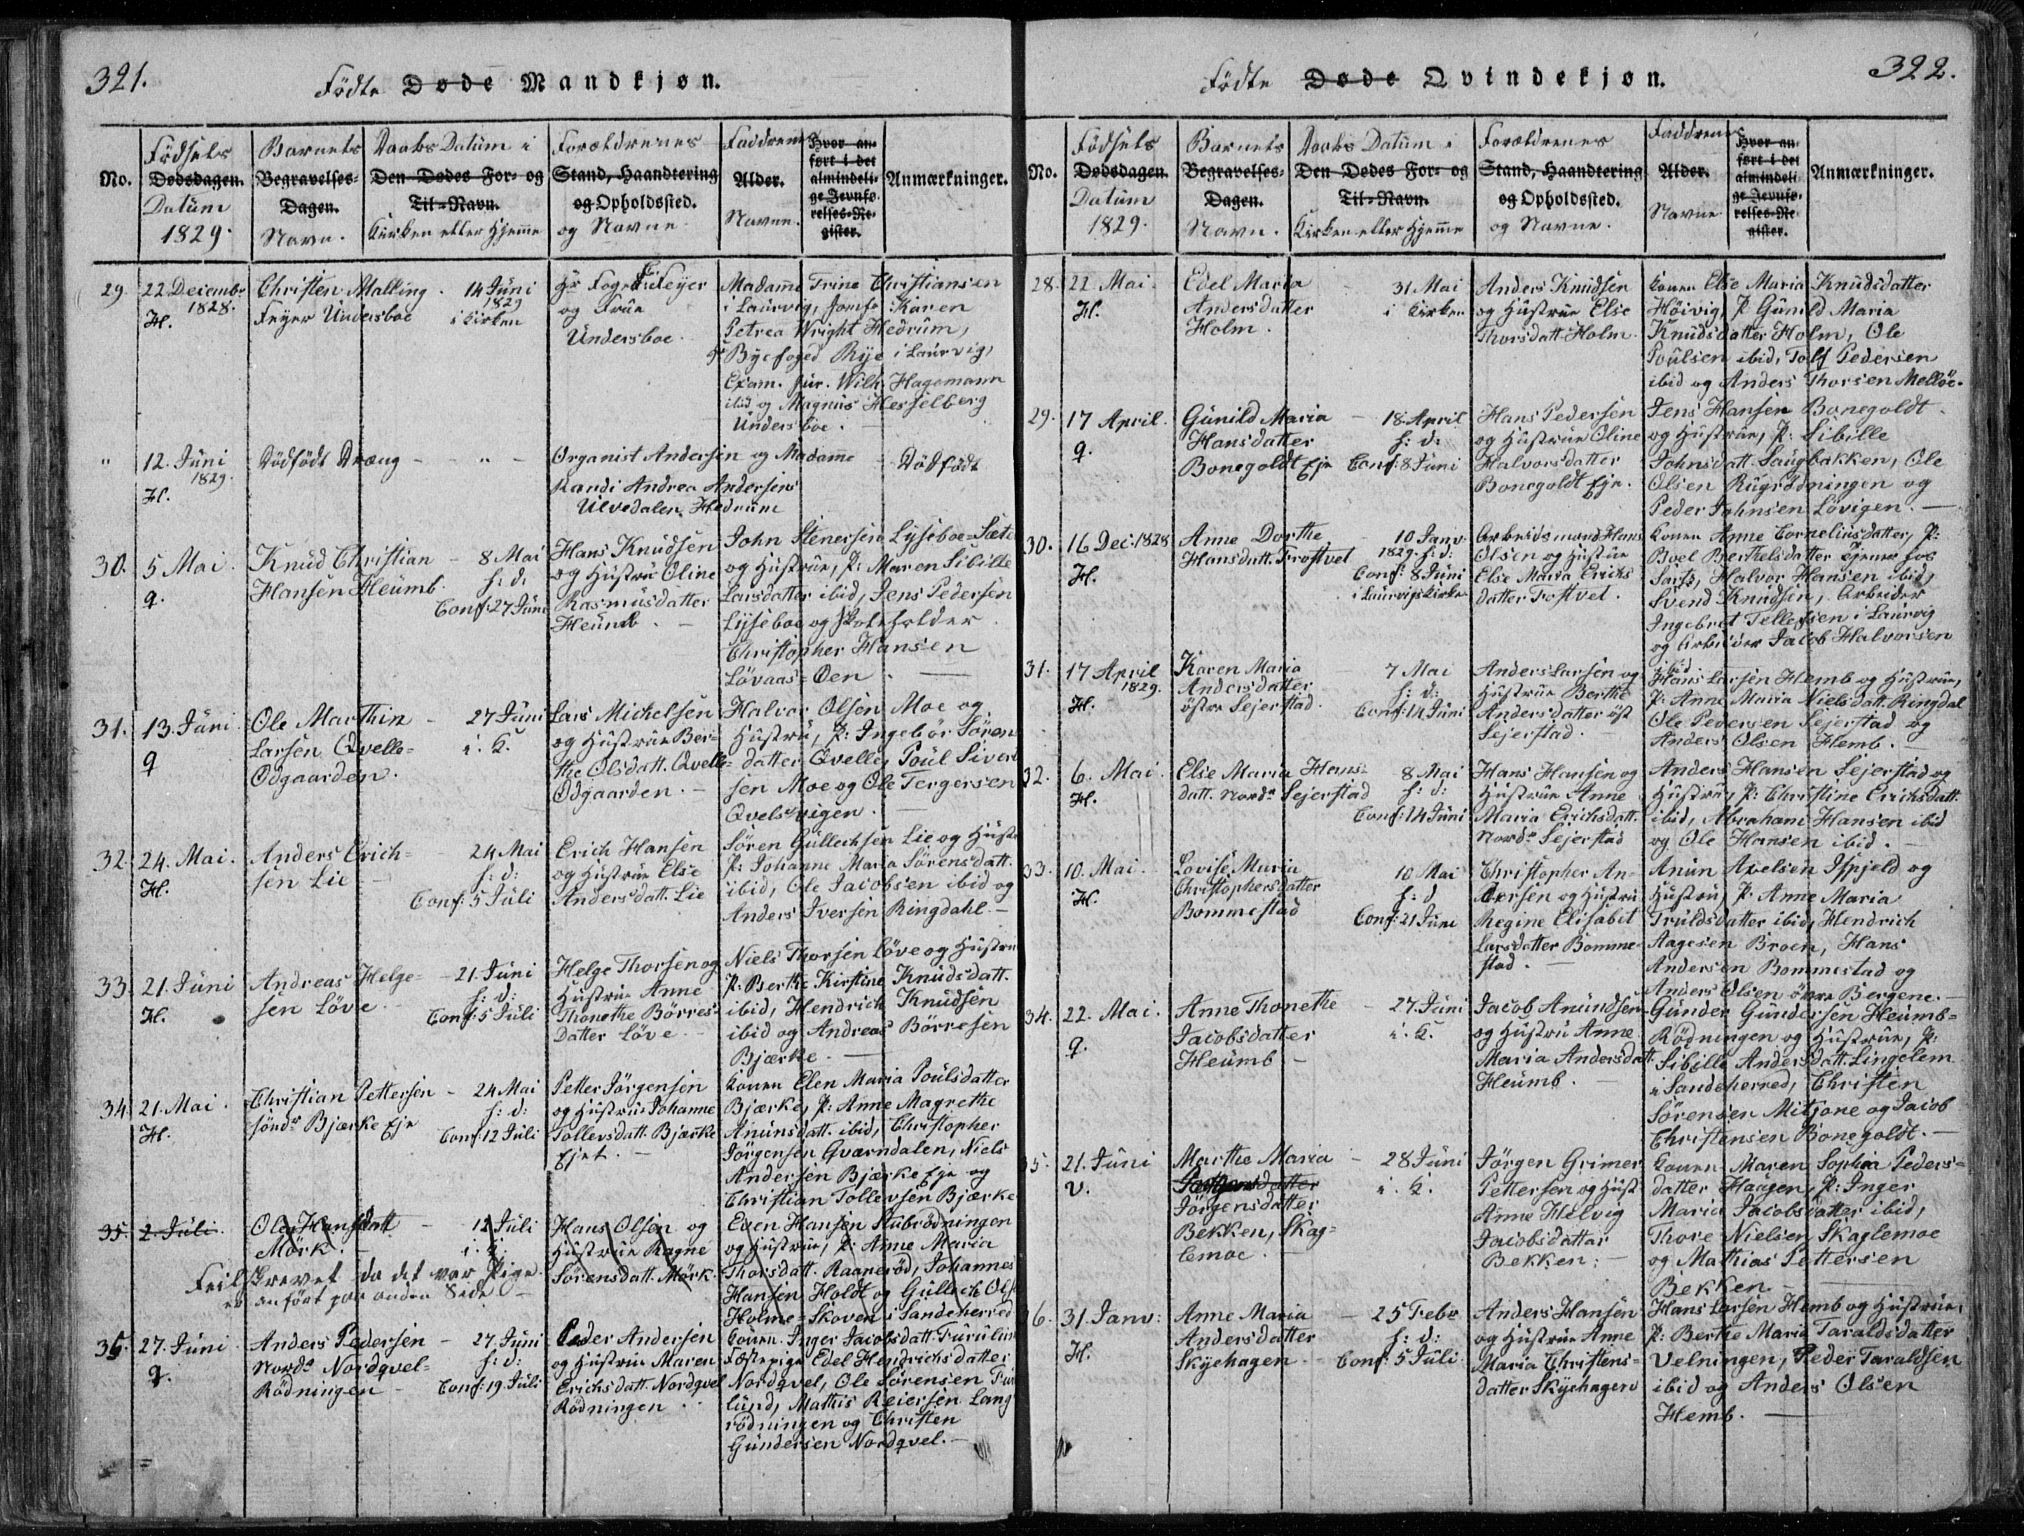 321.
Födte Døde Mandkjøn.
No.
Födsels
Dødsdagen.
Datum
1829.
Barnets
Begravelses-
Dagen.
Navn.
Daabs Datum i
Den Dødes For- og
Til-Navn.
Kirken eller Hjemme
Forældrenes
Stand, Haandtering
og Opholdssted.
og Navne.
Faddrenes
Alder.
Navne.
Hvor an-
ført i det
almindeli-
ge Jevnfø-
relses-Re-
gister.
Anmærkninger.
29
22 Decembr
1828.
H.
Christen Malling
Feyer Undersboe
14 Juni
1829
i Kirken
Hr Foged Feyer
og Frue
Undersboe.
Madame Trine Christiansen
i Laurvig, Jomfr Karen
Petrea Wright Hedrum,
Hr Byefoged Bye i Laurvig,
Exam. jur. Wilh. Hagemann
ibid og Magnus Hesselberg
Undersboe. —
"
12. Juni
1829.
H.
Dödfödt Dræng - - " -
Organist Andersen og Madame
Randi Andrea Andersens
Ulvedalen Hedrum
Dödfödt
30.
5 Mai.
q.
Knud Christian
Hansen Heumb.
8 Mai
h: d:
Conf: 27 Juni
Hans Knudsen
og Hustru Oline
Rasmusdatter
Heumb. —
John Stenersen Lyseboe-Sæter
og Hustrue, P: Maren Sibille
Larsdatter ibid, Jens Pedersen
Lyseboe og Skoleholder
Christopher Hansen
Lövaas-Øen —
31.
13. Juni
q
Ole Marthin
Larsen Qvelle-
Odgaarden.
27 Juni
i. K.
Lars Michelsen
og Hustrue Ber-
the Olsdatt. Qvelle-
Odgaarden. -
Halvor Olsen Moe og
Hustru, P: Ingebör Sörens
datter Qvelle, Poul Sivert
sen Moe og Ole Tergersen
Qvelsvigen. —
32.
24. Mai.
H.
Anders Erich-
sen Lie —
24 Mai
h: d:
Conf: 5 Juli
Erich Hansen
og Hustrue Else
Andersdatt. Lie
Sören Gullechsen Lie og Hustr
P: Johanne Maria Sörensdatt.
ibid, Ole Jacobsen ibid og
Anders Iversen Ringdahl. —
33.
21. Juni
H.
Andreas Helge-
sen Löve.
21. Juni
h: d:
Conf: 5 Juli
Helge Thorsen og
Hustrue Anne
Thonethe Börres-
Datter Löve —
Niels Thorsen Löve og Hustru
P: Berthe Kirstine Knudsdatt.
ibid, Hendrich Knudsen
ibid og Andreas Börresen
Bjærke. —
34
21. Mai.
H.
Christian Pettersen
söndr Bjærke Eje
24 Mai
h: d:
Conf: 12 Juli
Petter Jörgensen
og Hustrue Johanne
Tollevsdatt. Bjærke
Ejet. —
Konen Elen Maria Poulsdatter
Bjærke, P: Anne Magrethe
Anunsdatt. ibid, Christopher
Jörgensen Gværndalen, Niels
Andersen Bjærke Eje og
Christian Tollevsen Bjærke
35.
2 Juli
Ole Hansdatt
Mörk. —
12 Juli
i. K.
Hans Olsen og
Hustrue Ragne
Sörensdatt. Mörk.
Even Hansen Stubrödningen
og Hustrue, P: Anne Maria
Thorsdatt. Raaneröd, Johannes
Hansen Holdt og Gullich Ols
Holme-Skoven i Sandeherred
Feilskrevet da det var Pige
er anfört paa anden Side —
35.
27. Juni
q.
Anders Pedersen
Nordr Nordqvel-
Rödningen —
27. Juni
h: d:
Conf: 19. Juli
Peder Andersen
og Hustrue Maren
Erichsdatt. Nordqvel
Rödningen.
Konen Inger Jacobsdatt. Furulund
Fæstepige Edel Hendrichsdatter
Nordqvel, Ole Sörensen Furu
lund, Mathis Reiersen Lang
rödningen og Christen
Gundersen Nordqvel. —
322.
Födte Døde Qvindekjøn.
No.
Födsels
Dødsdagen.
Datum
1829.
Barnets
Begravelses-
Dagen.
Navn.
Daabs Datum i
Den Dødes For- og
Til-Navn.
Kirken eller Hjemme
Forældrenes
Stand, Haandtering
og Opholdssted.
og Navne.
Faddrenes
Alder.
Navne
Hvor an-
ført i det
almindeli-
ge Jevnfø-
relses-Re-
gister.
Anmærkninger.
28.
22 Mai.
H.
Edel Maria
Andersdatter
Holm.
31. Mai
i Kirken
Anders Knudsen
og Hustrue Else
Thorsdatt. Holm.
Konen Else Maria Knudsdatter
Höivig, P: Gunild Maria
Knudsdatter Holm, Ole
Poulsen ibid, Tolf Pedersen
ibid og Anders Thorsen Mellöe.
29.
17 April.
q.
Gunild Maria
Hansdatter
Bonegoldt Eje
18 April
h: d:
Conf: 8 Juni
Hans Pedersen
og Hustrue Oline
Halvorsdatter
Bonegoldt Eje.
Jens Hansen Bonegoldt
og Hustrue, P: Sibille
Johnsdatt. Saugbakken, Ole
Olsen Rugrödningen og
Peder Johnsen Lövigen. —
30.
16 Dec: 1828
H.
Anne Dorthe
Hansdatt. Trostvet
10 Janv
1829. h: d:
Conf: 8 Juni
i Laurvigs Kirke
Arbeidsmand Hans
Olsen og Hustrue
Else Maria Erichs
datter Trostvet.
Konen Anne Corneliusdatter, P:
Boel Berthelsdatter tjener hos
Sartz, Halvor Hansen ibid,
Svend Knudsen, Arbeider
Ingebret Tellefsen i Laurvig
og Arbeider Jacob Halvorsen
ibid
31.
17 April
1829.
H.
Karen Maria
Andersdatter
östre Sejerstad.
7 Mai
h: d:
Conf: 14 Juni
Anders Larsen og
Hustrue Berthe
Andersdatter öst
Sejerstad. —
Hans Larsen Hemb og Hustrue,
P: Anne Maria Nielsdatt. Ringdal
Ole Pedersen Sejerstad og
Anders Olsen Hemb. —
32.
6. Mai.
H.
Else Maria Hans-
datt. Nordr Sejerstad
8 Mai
h: d:
Conf: 14 Juni
Hans Hansen og
Hustrue Anne
Maria Erichsdatt.
Nordr Sejerstad
Anders Hansen Sejerstad og
Hustrue, P: Christine Erichsdatt.
ibid, Abraham Hansen ibid
og Ole Hansen ibid. —
33.
10. Mai.
H.
Lovise Maria
Christophersdatter
Bommestad
10 Mai
h: d
Conf: 21 Juni
Christopher An-
dersen og Hustru
Regine Elisabet
Larsdatter Bomme-
stad. —
Anun Axelsen Ispjeld og
Hustru, P: Anne Maria
Truldsdatter ibid, Hendrich
Aagesen Broen, Hans
Andersen Bommestad og
Anders Olsen övre Bergene. —
34.
22. Mai.
q.
Anne Thonethe
Jacobsdatter
Heumb —
27. Juni
i. K.
Jacob Anundsen
og Hustru Anne
Maria Andersdatt.
Heumb. —
Gunder Gundersen Heumb-
Rödningen og Hustrue, P:
Sibille Andersdatt. Lingelem
i Sandeherred, Christen
Sörensen Mitjone og Jacob
Christensen Bonegoldt. —
35.
21. Juni
V.
Marthe Maria
Jörgensdatter
Bekken, Skag-
lemoe. —
28 Juni
i. K.
Jörgen Grimer
Pettersen og Hust
Anne Helvig
Jacobsdatter
Bekken.
Konen Maren Sophia Peders-
datter Haagen, P: Inger
Maria Jacobsdatter ibid,
Thore Nielsen Skaglemoe
og Mathias Pettersen
Bekken —
36.
31. Janv:
H.
Anne Maria
Andersdatter
Skyehagen
25 Febr
h: d:
Conf: 5 Juli
Anders Hansen
og Hustrue Anne
Maria Christens-
datter Skyehagen
Hans Larsen Hemb og Hustrue,
P: Berthe Maria Taraldsdatter
Velningen, Peder Taraldsen
ibid og Anders Olsen
Hemb. —